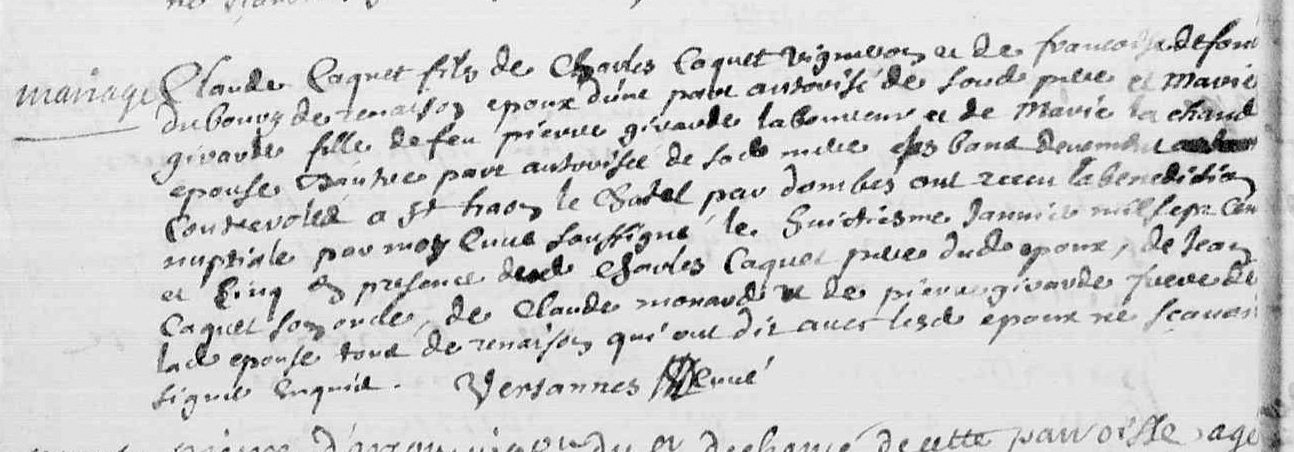 mariage Claude Caquet fils de Charles Caquet vigneron et de francoise defon
du bourg de renaison epoux d'une part autorisé de sond pere et Marie
girarde fille de feu pierre girarde laboureur et de Marie la chaud
epouse d'autre part autorisée de sad mere les bans deuement
Controvolés a St haon le Chatel par dombes ont receu la benediction
nuptiale par moy Curé soussigné le huictiesme Janvier mil sept Cen
et Cinq en presence dud Charles Caquet pere dud epoux, de Jean
Caquet son oncle, de Claude monard et de pierre girarde frere de
lad epouse tous de renaison qui ont dit avec lesd epoux ne scavoir
signer enquis. Versannes Curé
de cette parroisse agé